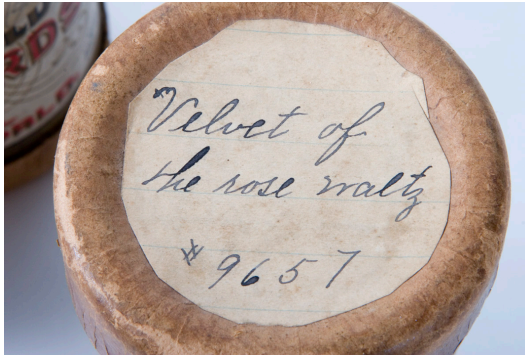 Velvet of
the rose waltz
# 9657
RDS